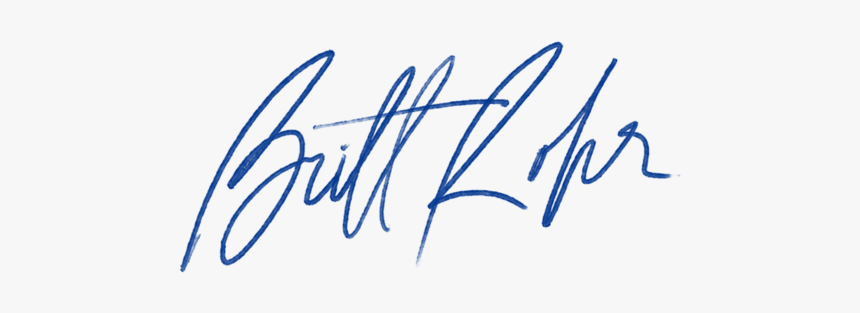 Britt Rohr